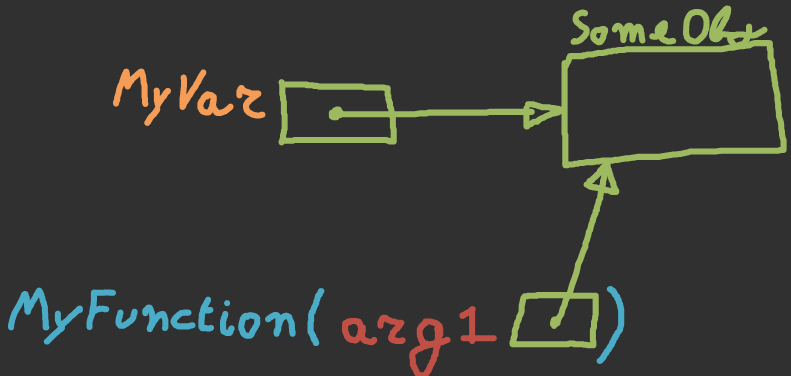 SomeObj
MyVar
MyFunction( arg1 )